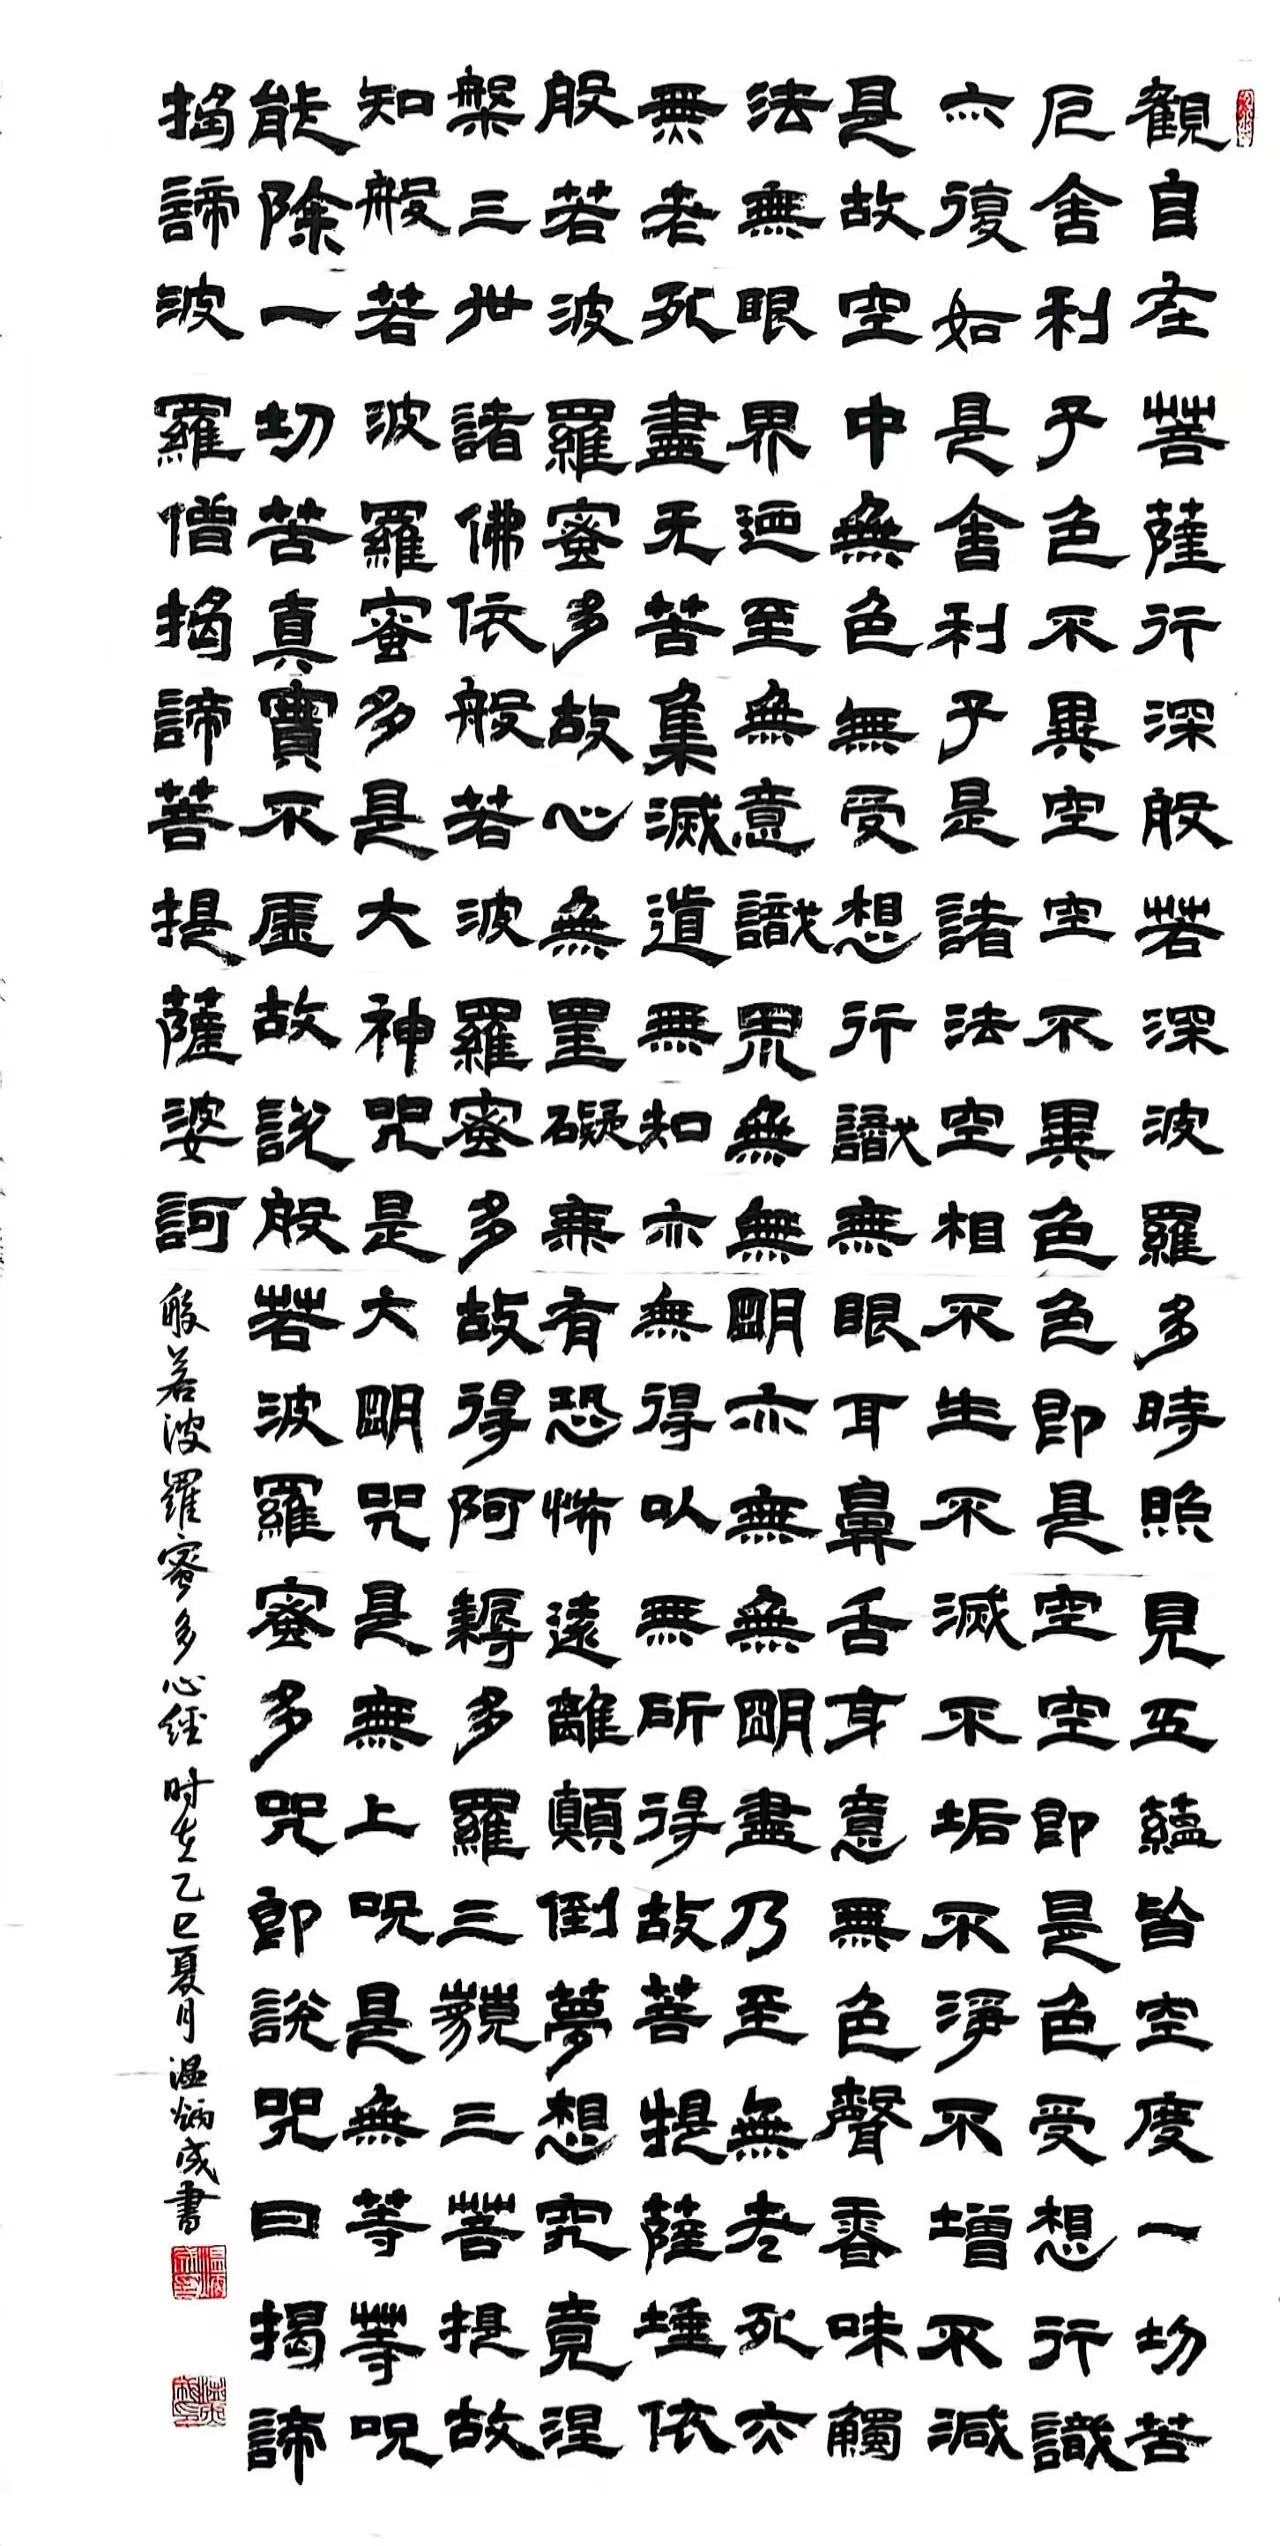 觀自在菩薩行深般若深波羅多時照見五蘊皆空度一切苦
厄舍利子色不異空空不異色色即是空空即是色受想行識
亦復如是舍利子是諸法空相不生不滅不垢不淨不增不減
是故空中無色無受想行識無眼耳鼻舌身意無色聲香味觸
法無眼界廼至無意識界無無明亦無無明盡乃至無老死亦
無老死盡无苦集滅道無知亦無得以無所得故菩提薩埵依
般若波羅蜜多故心無罣礙無有恐怖遠離顛倒夢想究竟涅
槃三世諸佛依般若波羅蜜多故得阿耨多羅三藐三菩提故
知般若波羅蜜多是大神咒是大明咒是無上呪是無等等呪
能除一切苦真實不虛故說般若波羅蜜多咒即說咒曰揭諦
揭諦波羅僧揭諦菩提薩婆訶
般若波羅蜜多心經 时在乙巳夏月 温炳成書